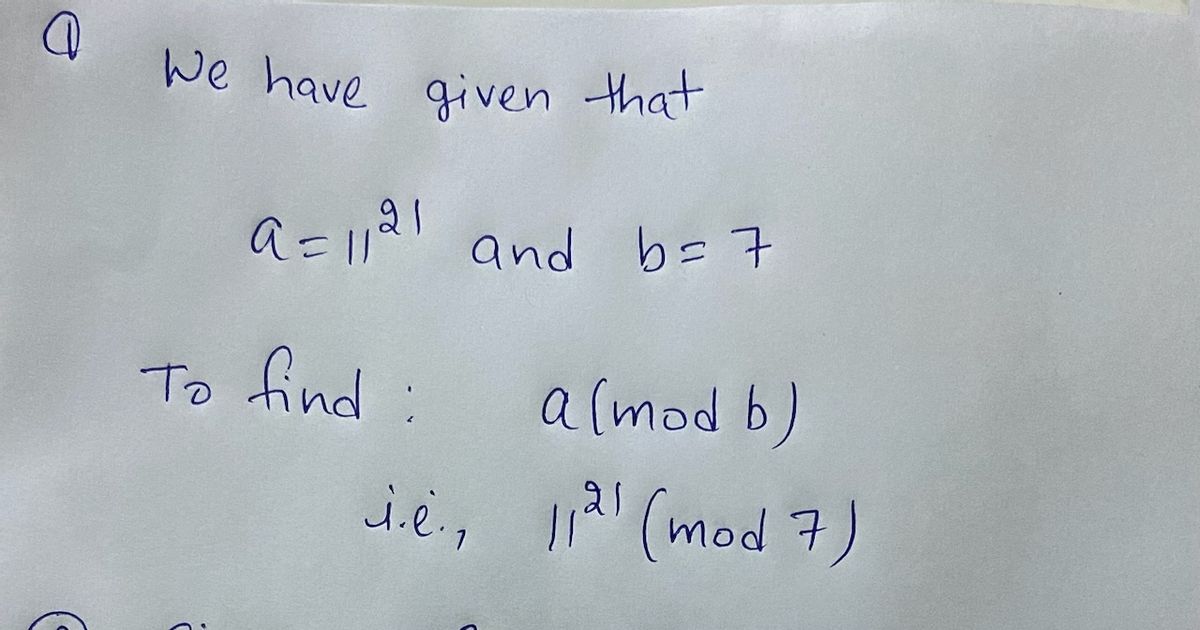 ① We have given that
a = 11²¹ and b = 7
To find : a (mod b)
i.e., 11²¹ (mod 7)